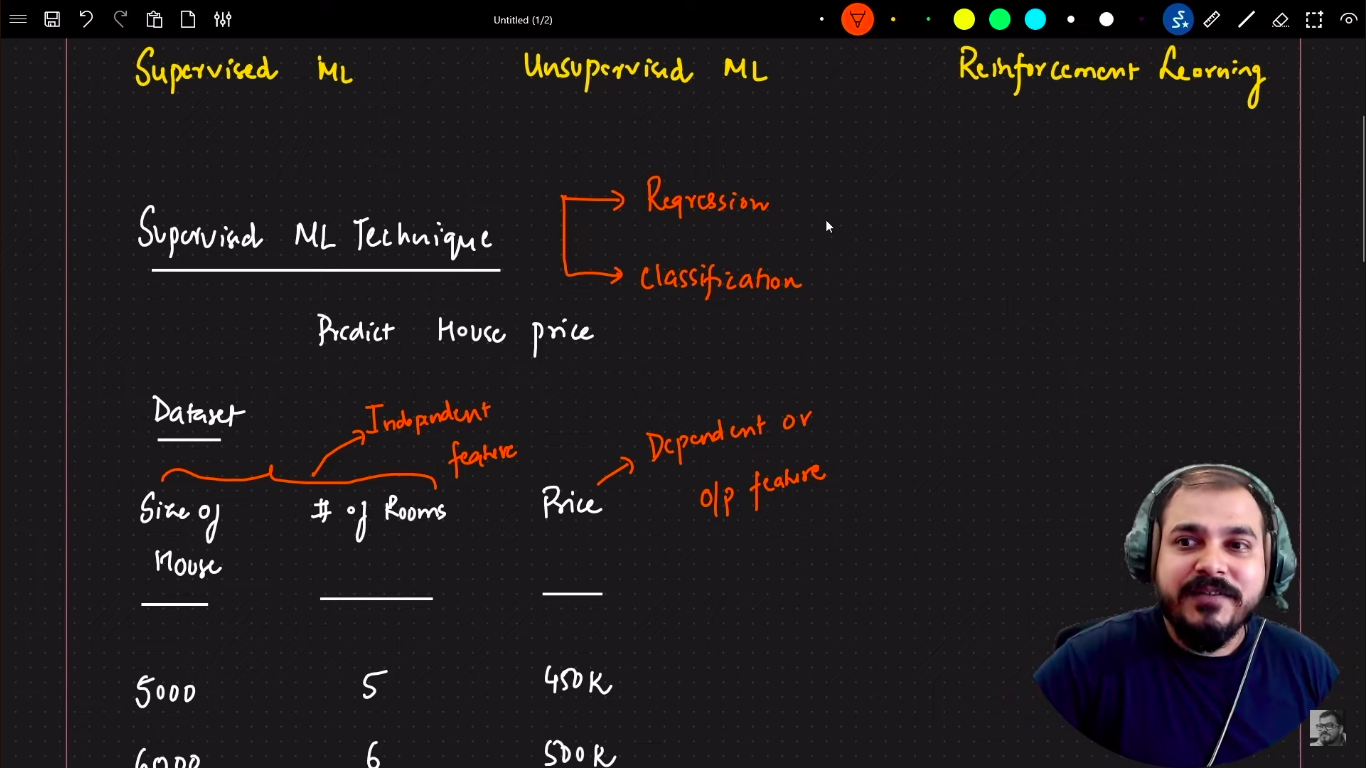 Untitled (1/2)
Supervised ML Unsupervised ML Reinforcement Learning
Regression
Supervised ML Technique
Classification
Predict House price
Dataset
Independent feature
Dependent or
O/p feature
Size of House
# of Rooms
Price
5000 5 450K
6000 6 500K